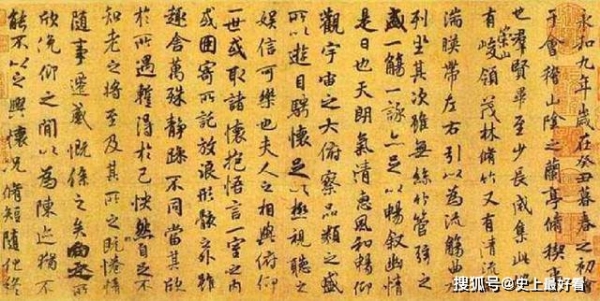 永和九年歲在癸丑暮春之初
于會稽山陰之蘭亭脩稧事
也群賢畢至少長咸集此
有崇山峻領茂林脩竹又有清流
湍暎帶左右引以為流觴曲
列坐其次雖無絲竹管弦之
盛一觴一詠亦足以暢敘幽情
是日也天朗氣清惠風和暢仰
觀宇宙之大俯察品類之盛
所以遊目騁懷足以極視聽之
娛信可樂也夫人之相與俯仰
一世或取諸懷抱悟言一室之內
或因寄所託放浪形骸之外雖
趣舍萬殊靜躁不同當其欣
於所遇蹔得於己怏然自足不
知老之將至及其所之既惓情
隨事遷感慨係之矣向之所
欣俛仰之間以為陳迹猶不
能不以之興懷況脩短隨化終
搜狐号@史上最好看